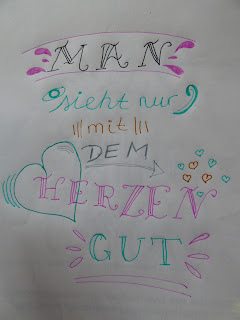 MAN
sieht nur
mit
DEM
HERZEN
GUT